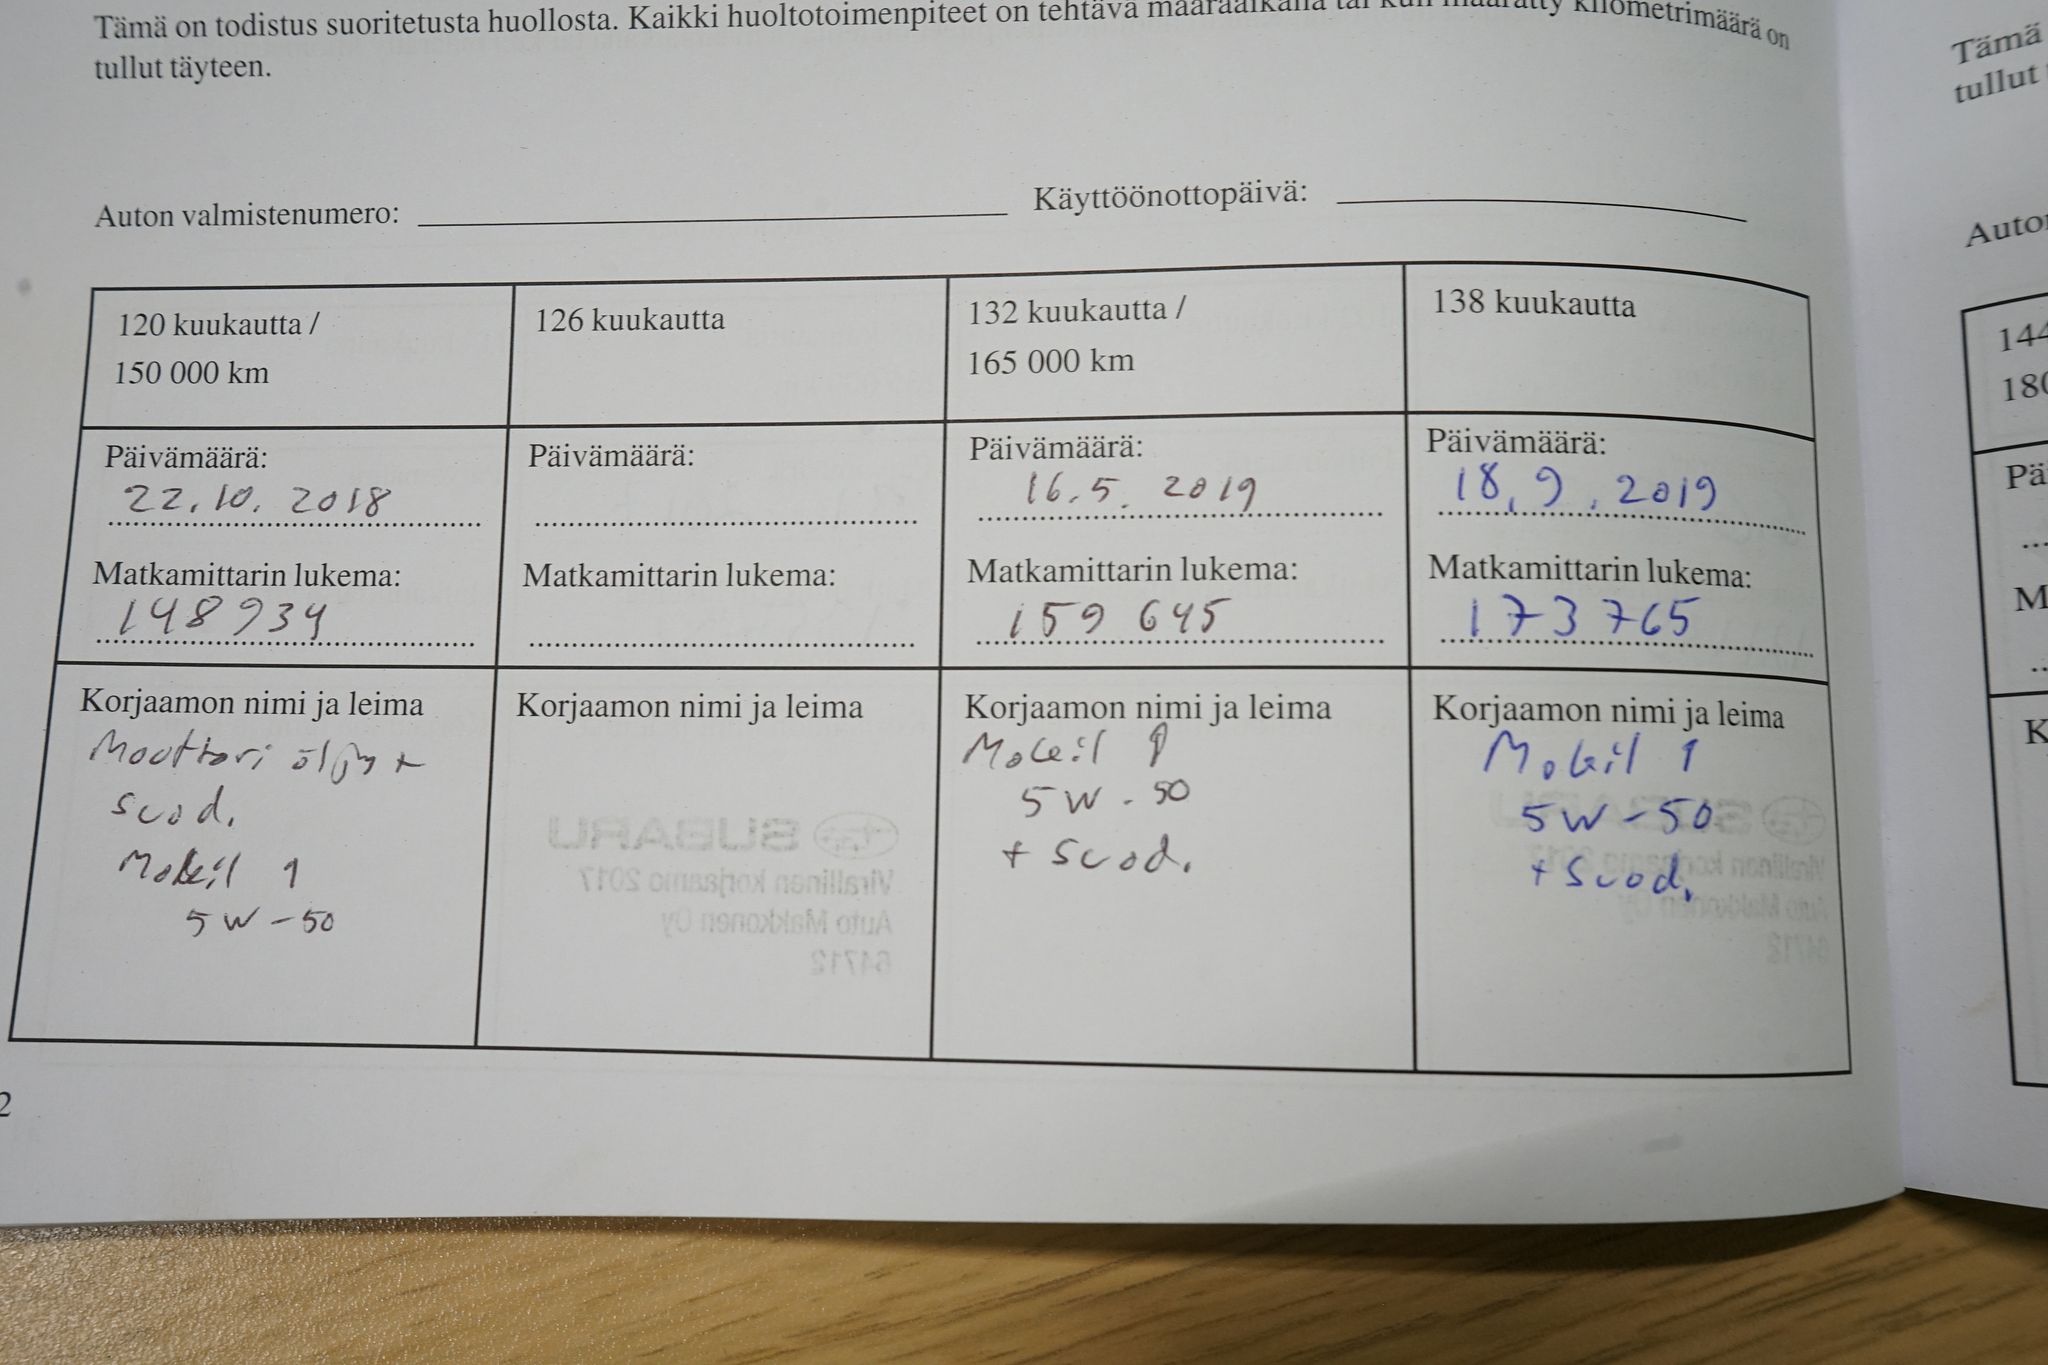 Tämä on todistus suoritetusta huollosta. Kaikki huoltotoimenpiteet on tehtävä määräaikana tai kun määrätty kilometrimäärä on
tullut täyteen.
Auton valmistenumero:
Käyttöönottopäivä:
120 kuukautta /
150 000 km
Päivämäärä:
22.10. 2018
Matkamittarin lukema:
148934
Korjaamon nimi ja leima
Moottori öljy +
suod.
Mobil 1
5W-50
126 kuukautta
Päivämäärä:
Matkamittarin lukema:
Korjaamon nimi ja leima
SUBARU
Virallinen korjaamo 2017
Auto Makkonen Oy
64712
132 kuukautta /
165 000 km
Päivämäärä:
16.5. 2019
Matkamittarin lukema:
159 645
Korjaamon nimi ja leima
Mobil 1
5W-50
+ suod.
138 kuukautta
Päivämäärä:
18.9.2019
Matkamittarin lukema:
173 765
Korjaamon nimi ja leima
Mobil 1
5W-50
+ suod.
2
Tämä
tullut
144